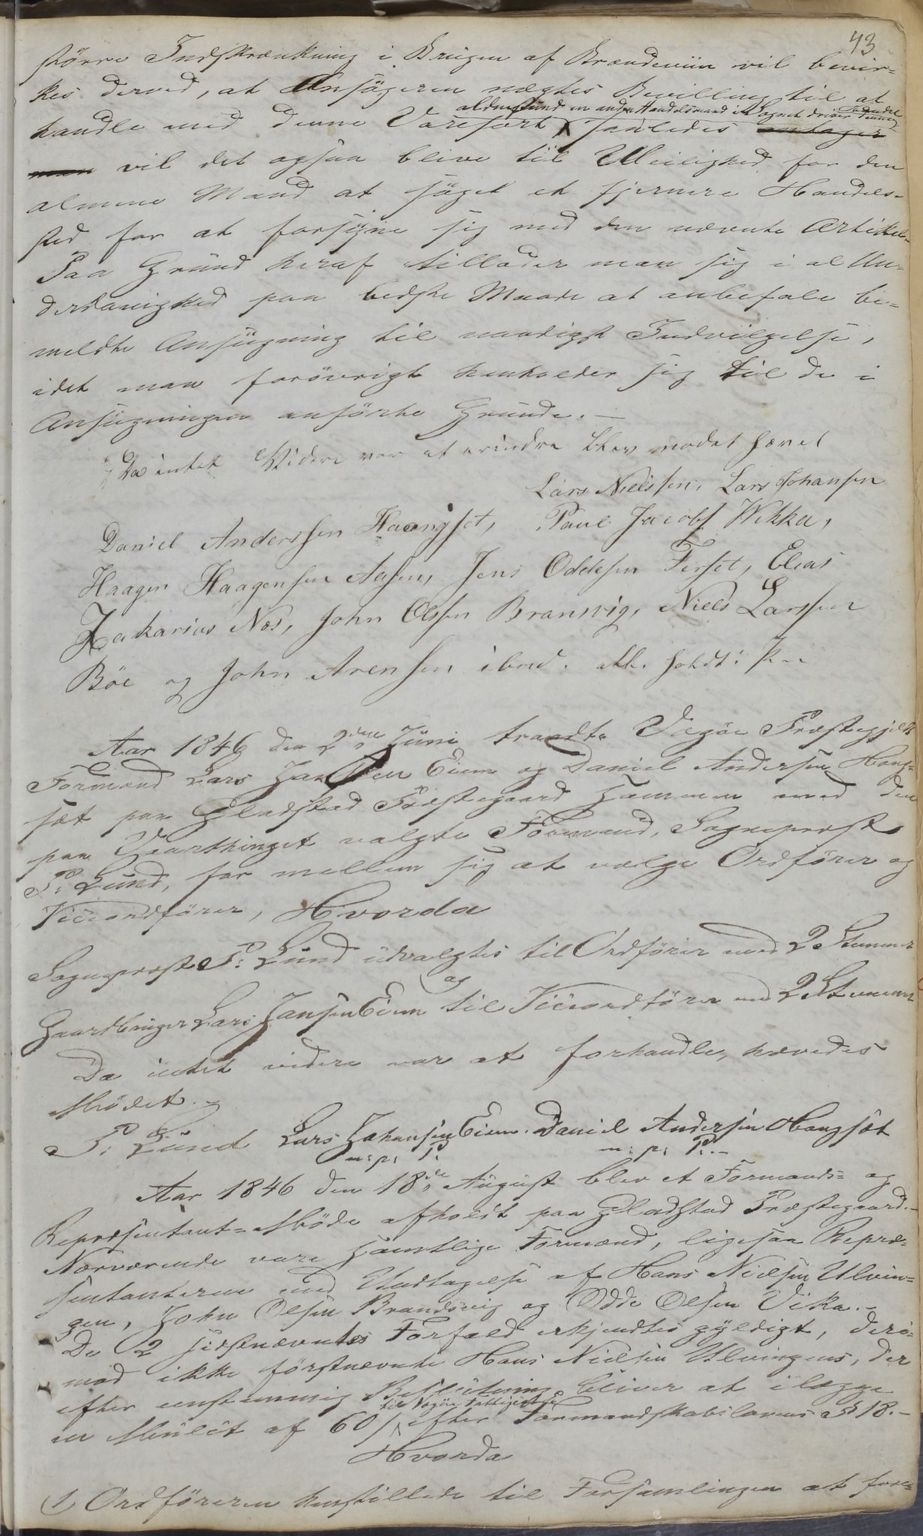 43
större Indskrænkning i Brugen af Brændeviin vil bevir-
kes derved, at Ansögeren nægtes Bevilling til at
handle med denne Varesort, saaledes
vil det ogsaa blive til Uleilighed for den
almene Mand at söge et fjernere Handels-
sted for at forsyne sig med den nævnte Artikel.
Paa Grund heraf tillader man sig i al Un-
derdanighed paa bedste Maade at anbefale be-
meldte Ansögning til naadigst Indvilgelse,
idet man forövrigt henholder sig til de i
Ansögningen anförte Grunde. —
Da intet Videre var at erindre blev mödet hævet
Lars Nielssen, Lars Johansen
Daniel Anderssen Haangset, Paul Jacobs Wikka,
Haagen Haagensen Aasen, Jens Oddesen Forset, Elias
Zakarias Nos, John Olssen Bransvig, Niels Larssen
Böe og John Arensen ibid.
Aar 1846 den 2den Juni traadte Vegöe Præstegjelds
Formænd Lars Jansen Eiem og Daniel Andersen Hong-
sæt paa Gladstad Præstegaard sammen med den
paa Vaarthinget valgte Formand, Sognepræst
P: Lund, for mellem sig at vælge Ordförer og
Viceordförer, Hvorda
Sognepræst P: Lund udvalgtes til Ordförer med 2 Stemmer
og
Gaardbruger Lars Jansen Eiem til Viceordförer med 2 Stemmer
Da intet videre var at forhandle, hævedes
Mödet. —
P: Lund Lars Johansen Eiem. Daniel Andersen Hongsæt
m: p: P. m: p: P. —
Aar 1846 den 18de August blev et Formands- og
Repræsentant-Möde afholdt paa Gladstad Præstegaard. —
Nærværende vare samtlige Formænd, ligesaa Repræ-
sentanterne med Undtagelse af Hans Nielsen Ulvin-
gen, John Olsen Brandsvig og Odde Olsen Vika. —
De 2 sidstnævntes Forfald erkjendtes gyldigt, deri-
mod ikke förstnævnte Hans Nielsen Ulvingens, der
efter eenstemmig Beslutning bliver at ilægge
til Vegöe Fattigkasse
en Mulct af 60 ß efter Formandskabslovens § 18. —
Hvorda
1, Ordföreren henstillede til Forsamlingen at fore-